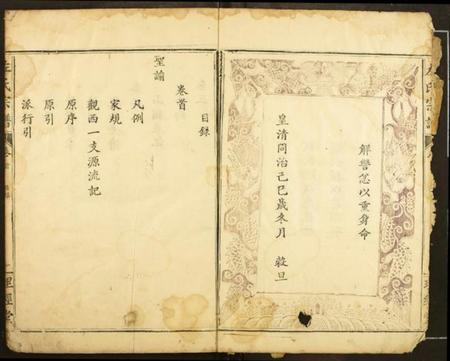 解讐忿以重身命
皇清同治己巳歲冬月 穀旦
目錄
卷首
聖諭
凡例
家規
觀西一支源流記
原序
原引
派行引
氏宗譜